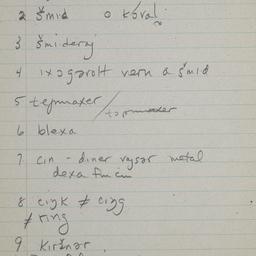 2 šmid o kóval
3 šmideraj
4 ix ɔgərolt vern a šmid
5 tepmaxer / tɔpmaxer
6 blexa
7 cin - diner vajsər metal
dexa fun cin
8 cink ≠ cing
≠ ring
9 kiršnər